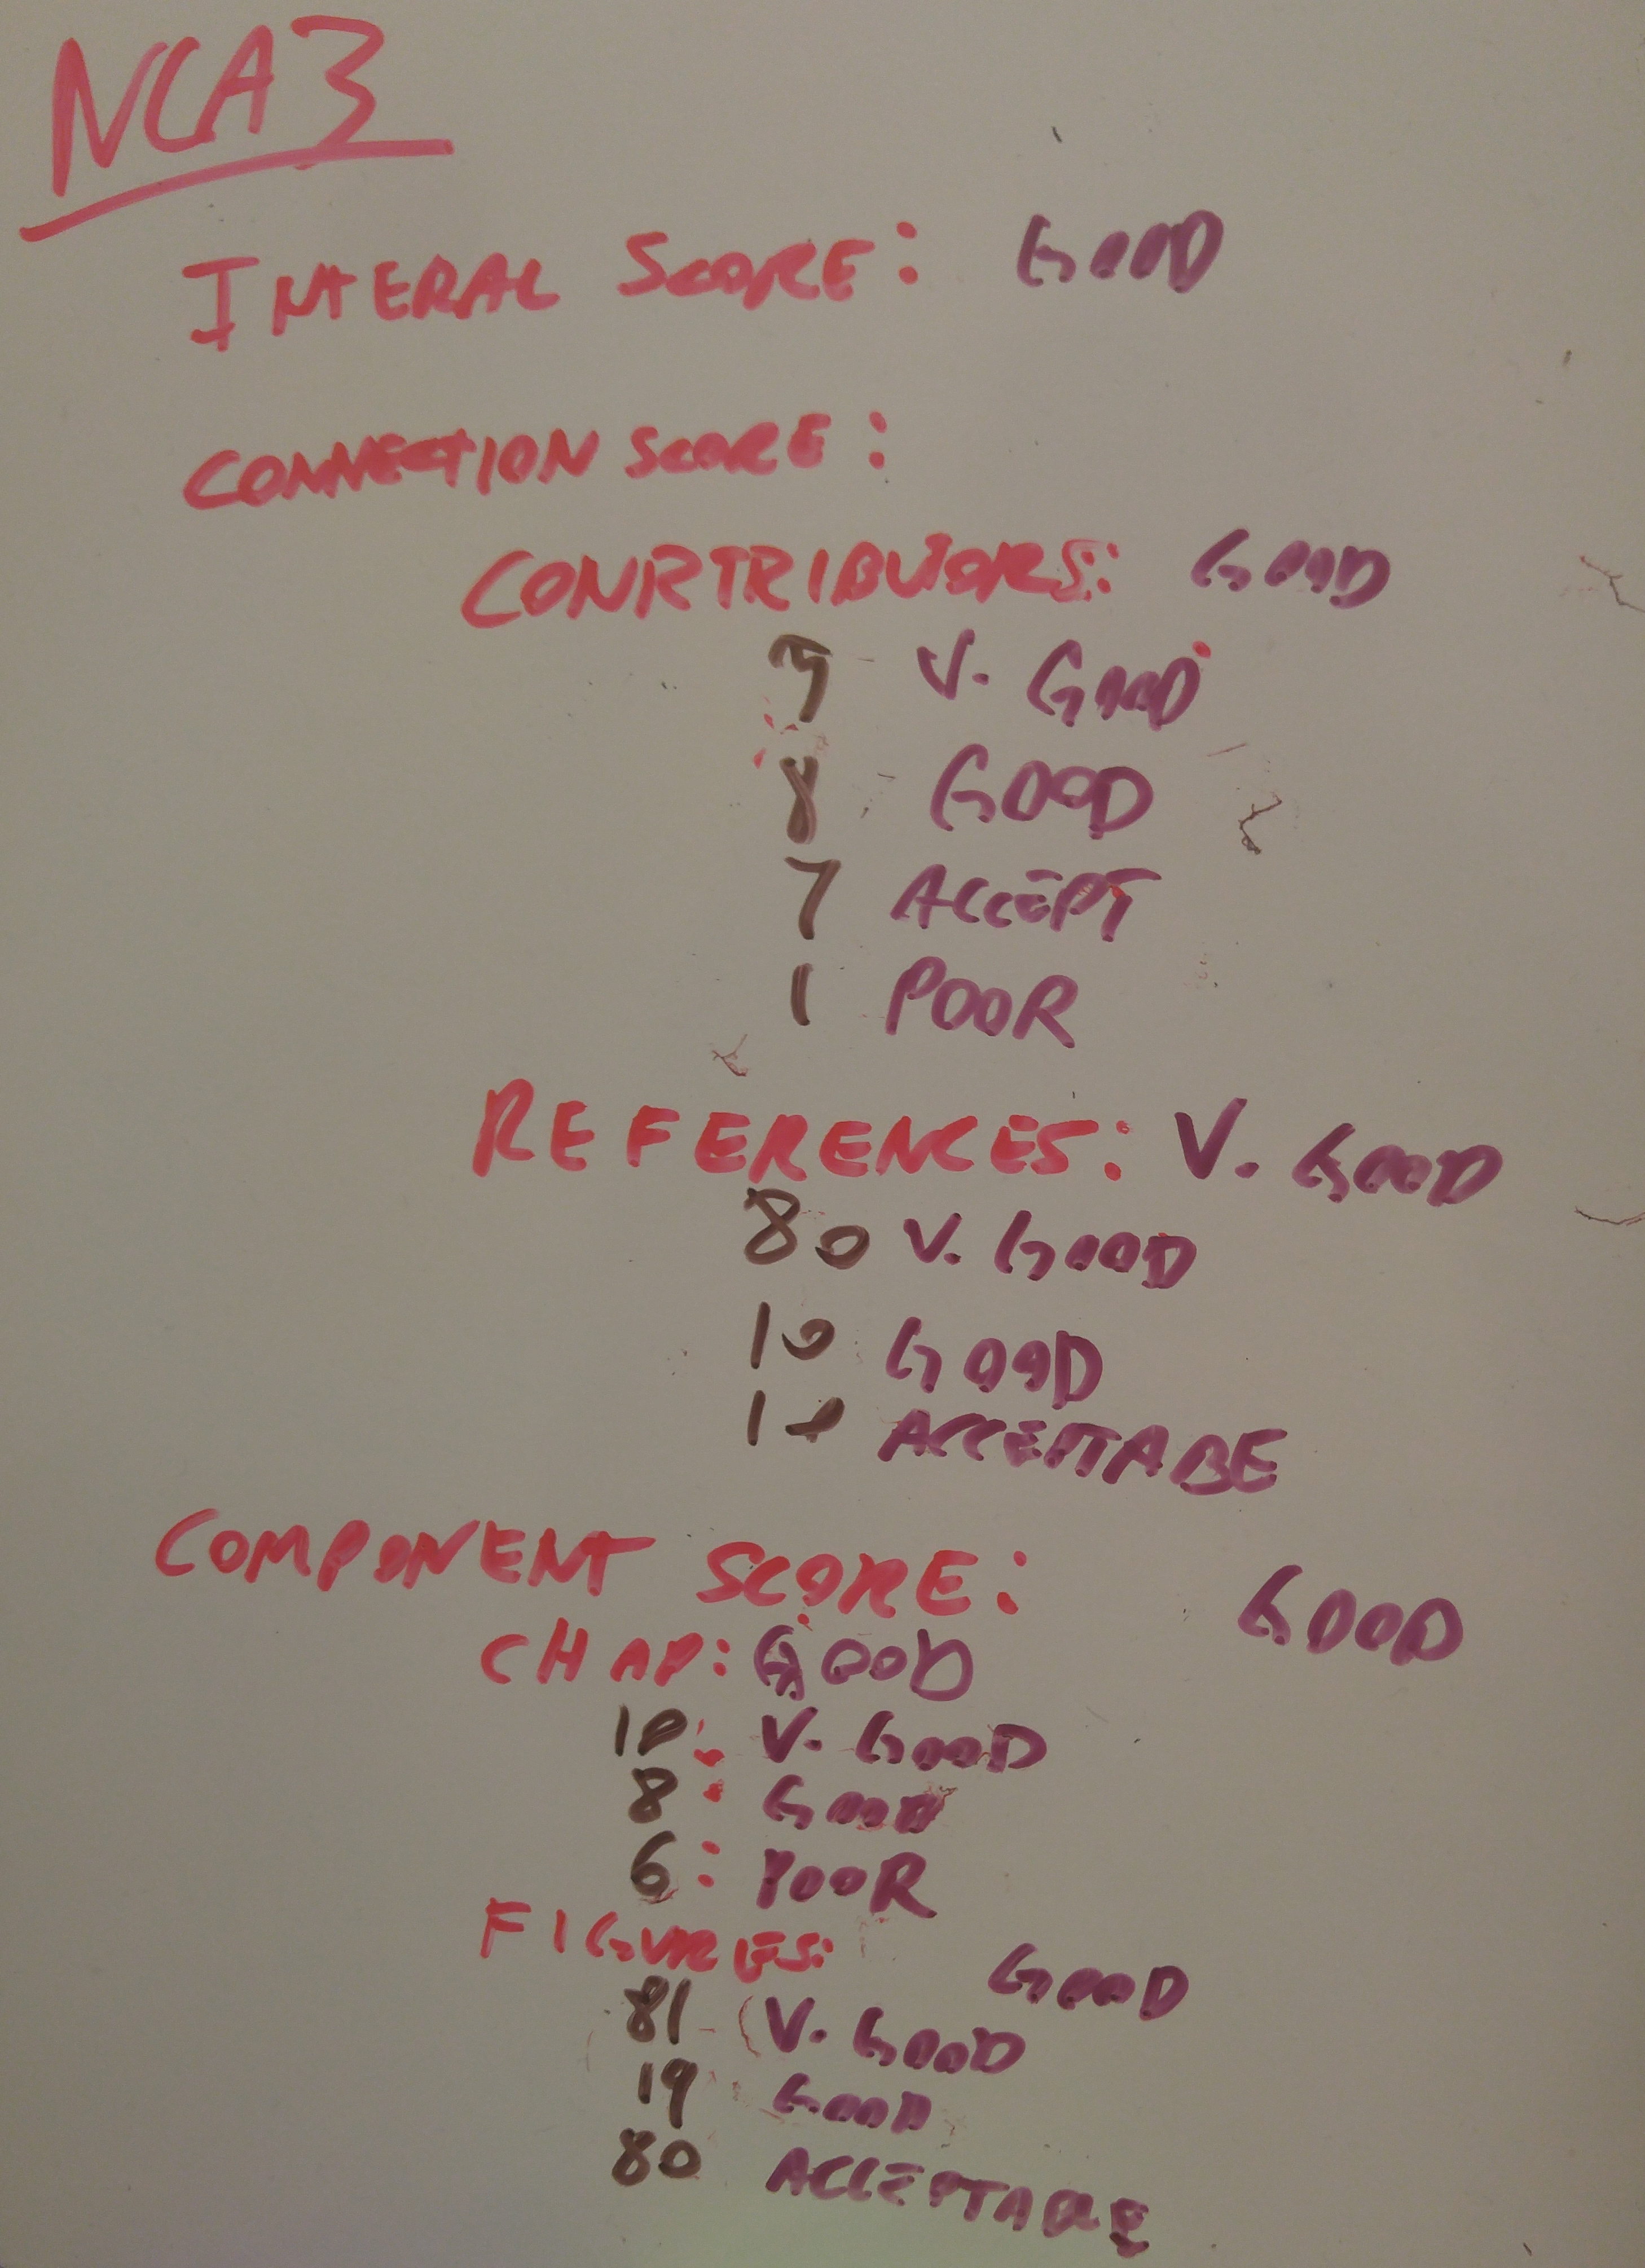 NCA3
INTERAL SCORE: GOOD
CONNECTION SCORE:
CONRTRIBUTORS: GOOD
V. GOOD
8 GOOD
7 ACCEPT
1 POOR
REFERENCES: V. GOOD
80 V. GOOD
10 GOOD
10 ACCEPTABE
COMPONENT SCORE: GOOD
CHAP: GOOD
10: V. GOOD
8: GOOD
6: POOR
FIGURES: GOOD
81 V. GOOD
19 GOOD
80 ACCEPTABLE